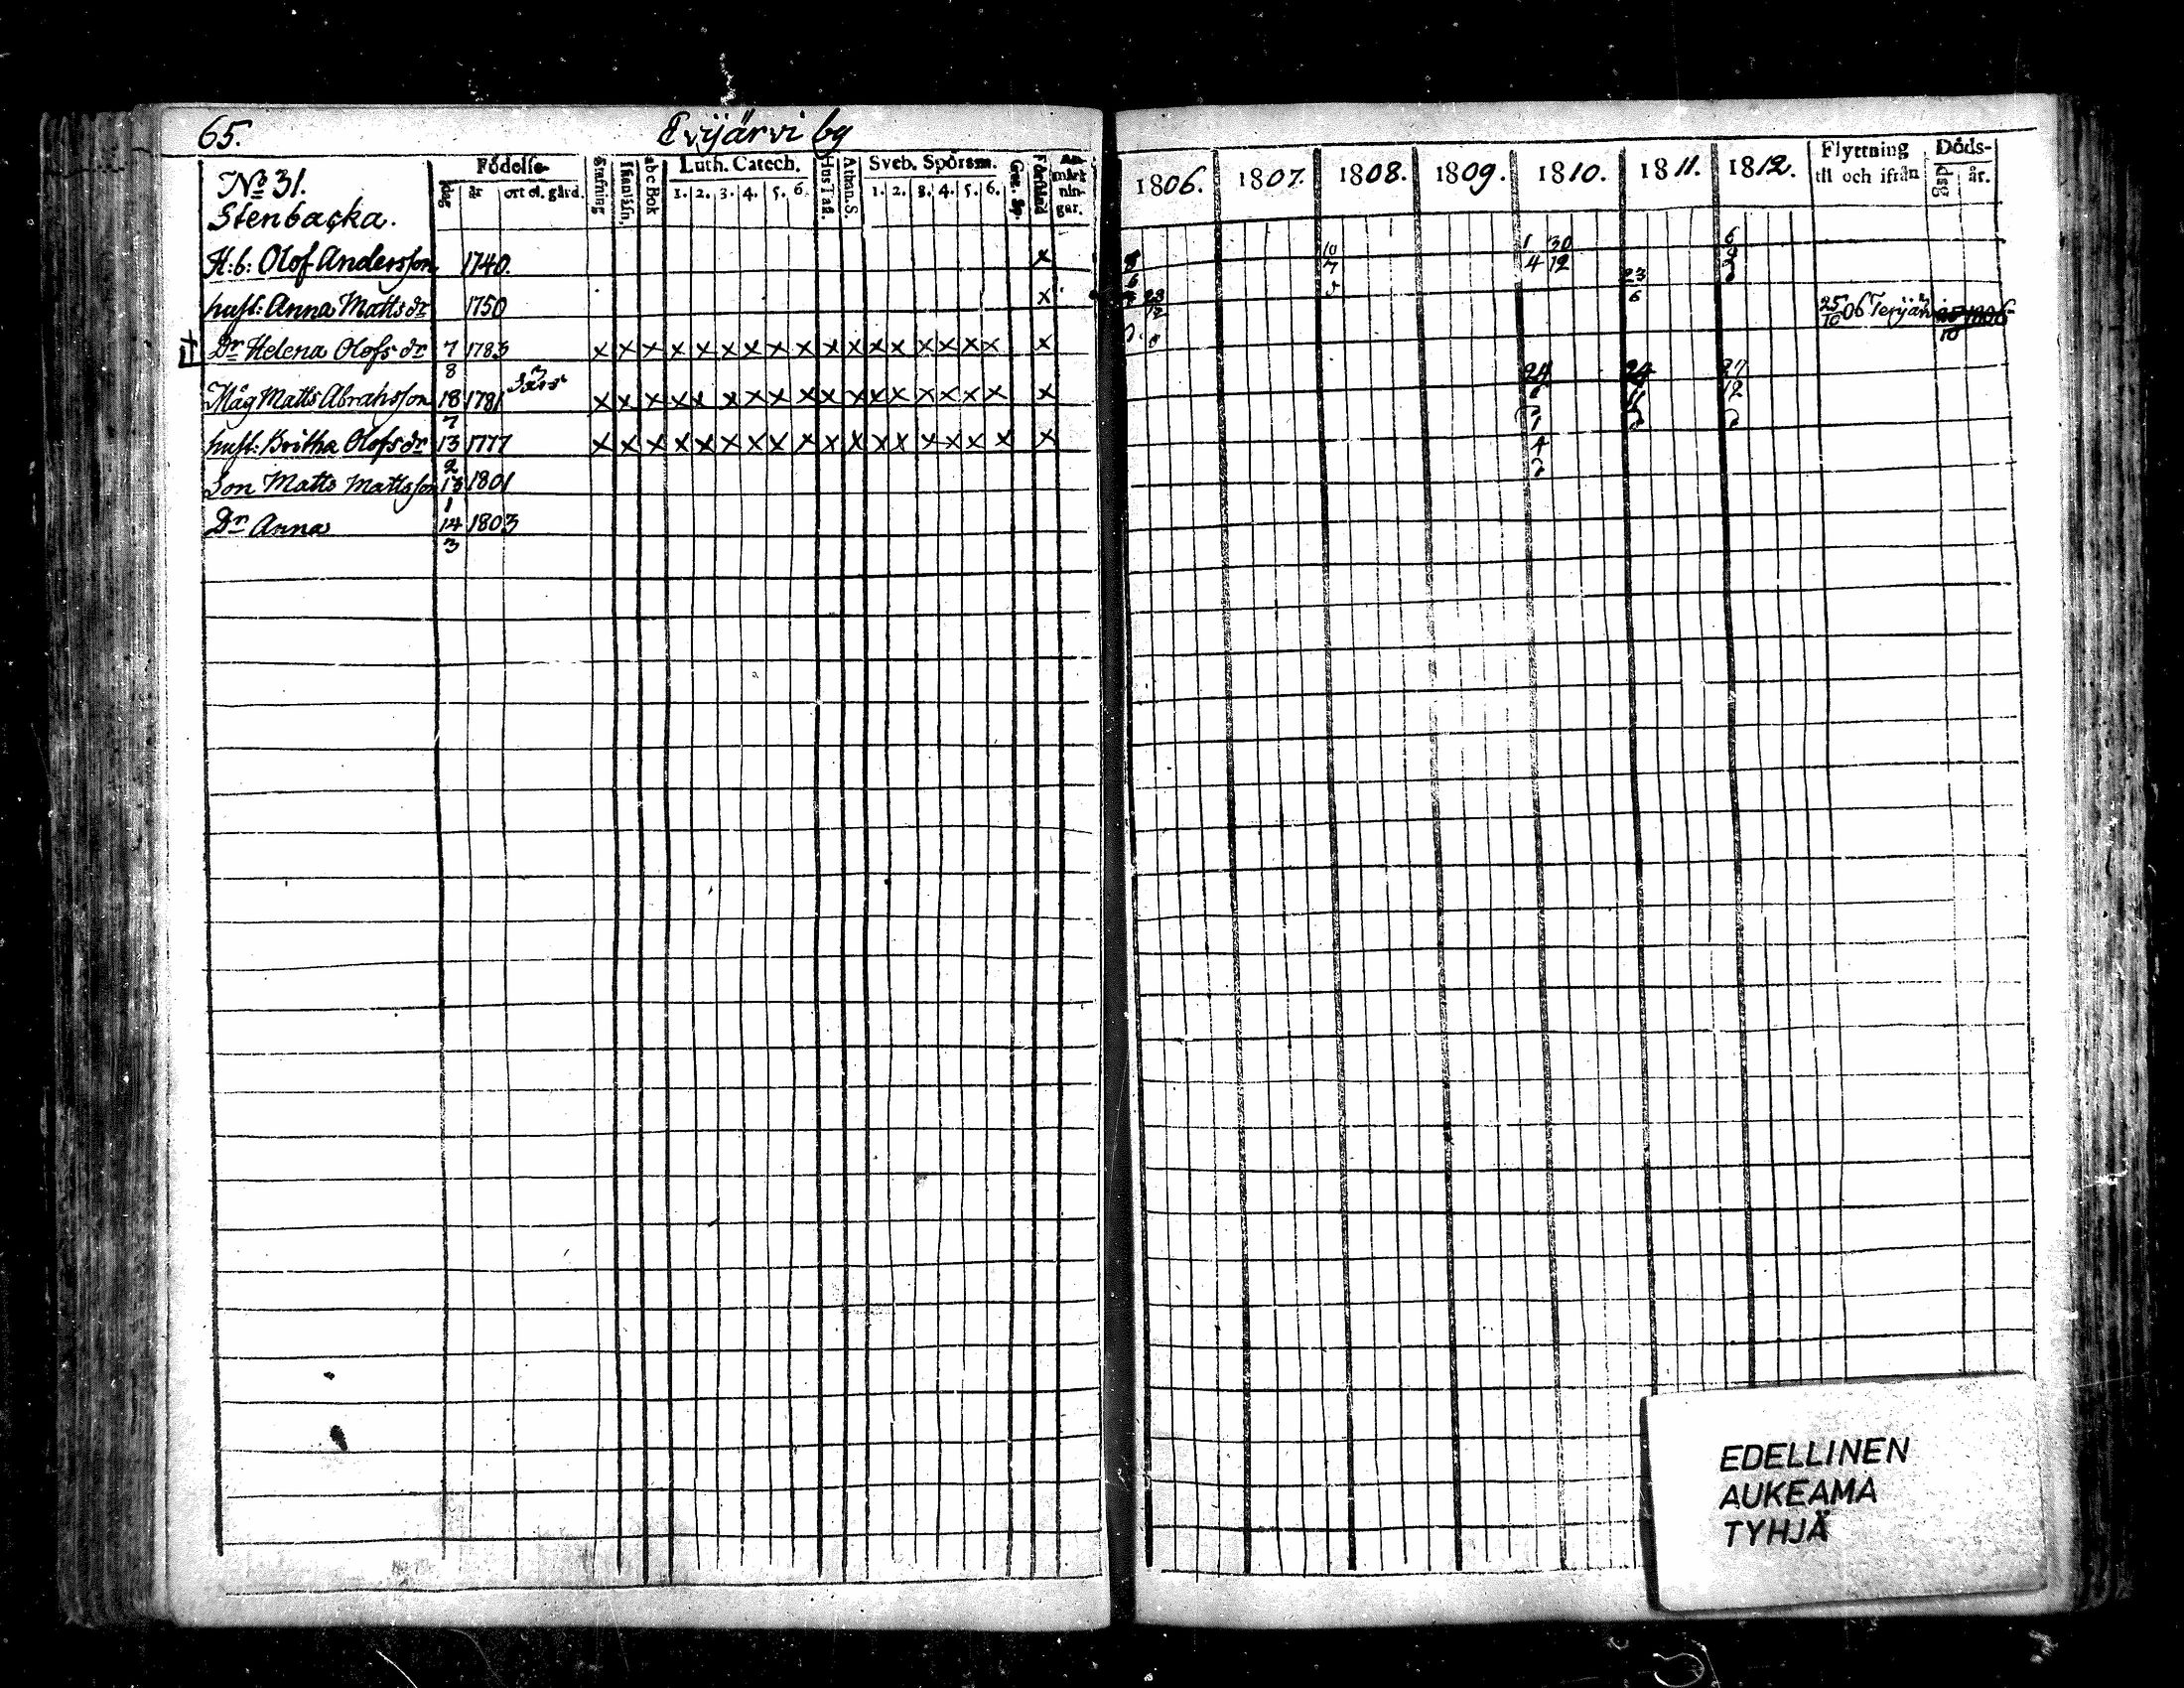 65.
Evijärvi by
No 31.
Stenbacka.
Födelse-
dag
år
ort el. gård.
Stafning
abc Bok
Luth. Catech.
1. 2. 3. 4. 5. 6.
Hus Taf.
Athan. S.
Sveb. Spörsm.
1. 2. 3. 4. 5. 6.
Gez. Sp.
Förstånd
An-
märk
nin-
gar.
1806. 1807. 1808. 1809. 1810. 1811. 1812.
Flyttning
till och ifrån
Döds-
dag
år.
H:b: Olof Andersson 1740. x 10 7 1 4 30 12
hust: Anna Matts dr 1750 x 23 6
Dr Helena Olofs dr 7 8 1783 x x x x x x x x x x x x x x x x x x 25 10 06 Terijärv
Måg Matts Abrahsson 18 7 1781 x x x x x x x x x x x x x x x x x x 24 24 27 12
hust: Britha Olofs dr 13 2 1777 x x x x x x x x x x x x x x x x x x 4
Son Matts Mattsson 13 1 1801
Dr Anna 14 3 1803
EDELLINEN
AUKEAMA
TYHJÄ